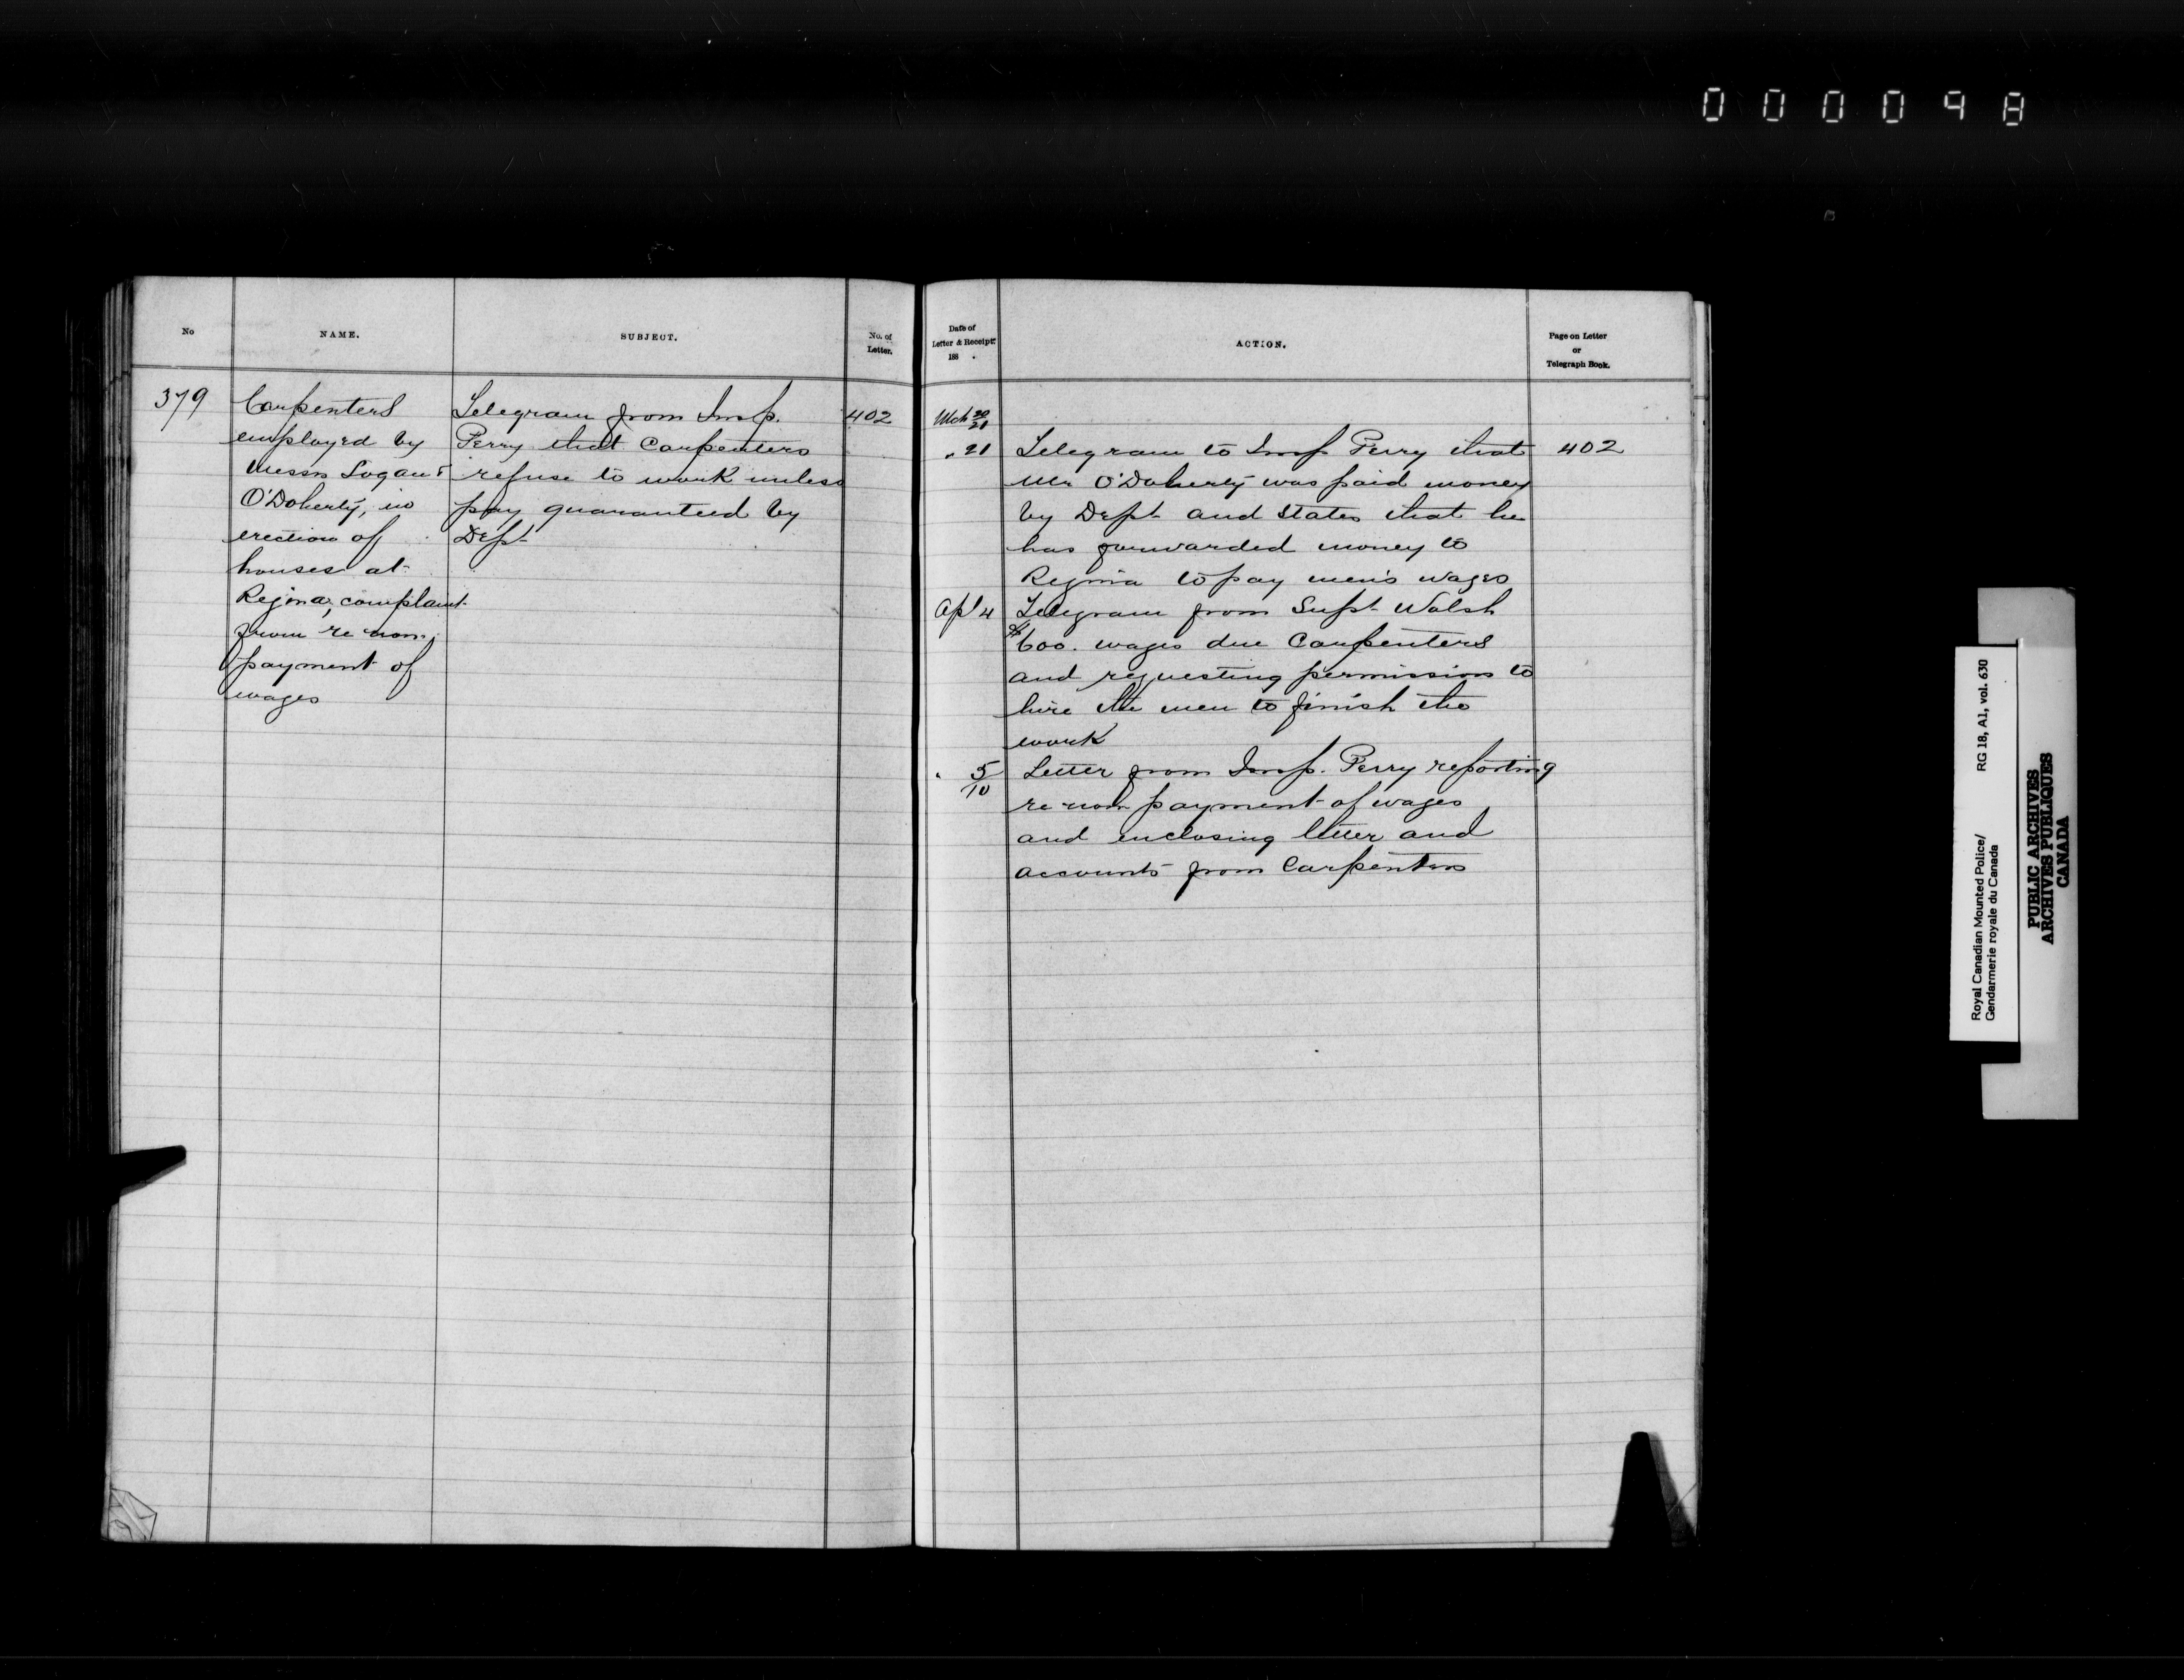 000098
No
NAME.
SUBJECT.
No. of
Letter.
Date of
Letter & Receipt
188 .
ACTION.
Page on Letter
or
Telegraph Book.
379
Carpenters
employed by
Messrs Logan &
O'Doherty, in
erection of
houses at
Regina, complaint
from re non-
payment of
wages
Telegram from Insp.
Perry that Carpenters
refuse to work unless
pay guaranteed by
Dept
402
Mch 20/21
" 21
Telegram to Insp Perry that
Mr O'Doherty was paid money
by Dept and states that he
has forwarded money to
Regina to pay men's wages
402
Apl 4
Telegram from Supt Walsh
$600. wages due Carpenters
and requesting permission to
hire the men to finish the
work
" 5/10
Letter from Insp. Perry reporting
re non payment of wages
and enclosing letter and
accounts from Carpenters
Royal Canadian Mounted Police/
Gendarmerie royale du Canada
RG 18, A1, vol. 630
PUBLIC ARCHIVES
ARCHIVES PUBLIQUES
CANADA